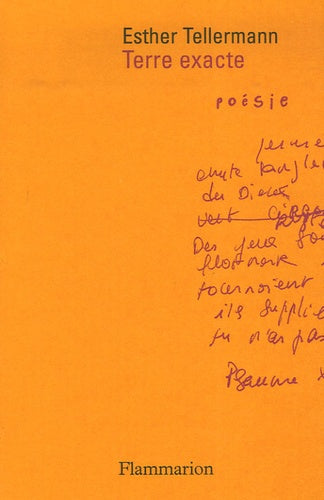 Esther Tellermann
Terre exacte
poésie
chute
des Dieux
vent
Des yeux
flottoient
tournoient
ils supplie
tu n'as pas
Psaume
Flammarion